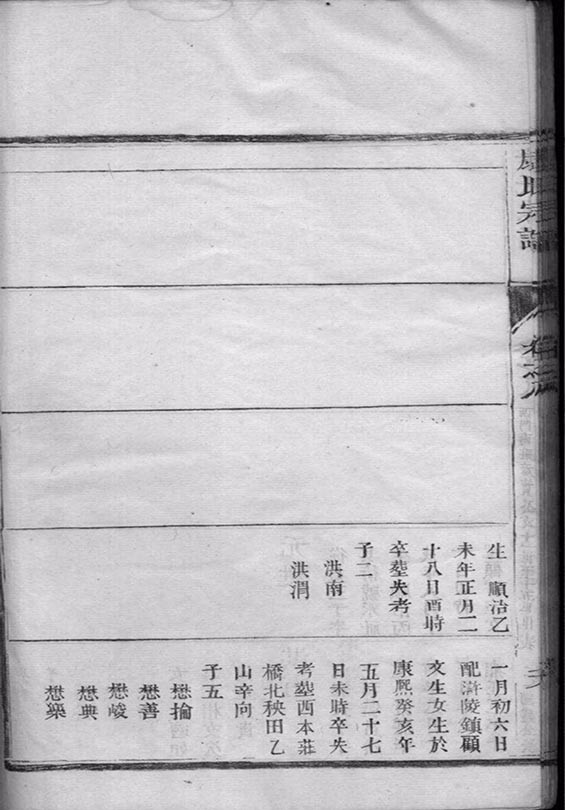 氏宗譜
卷之
生 順治乙
未年正月二
十八日酉時
卒塟失考
子二
洪南
洪
一月初六日
配滸陵鎮顧
文生女生於
康熙癸亥年
五月二十七
日未時卒失
考塟西本莊
橋北秧田乙
山辛向
子五
懋掄
懋善
懋峻
懋典
懋